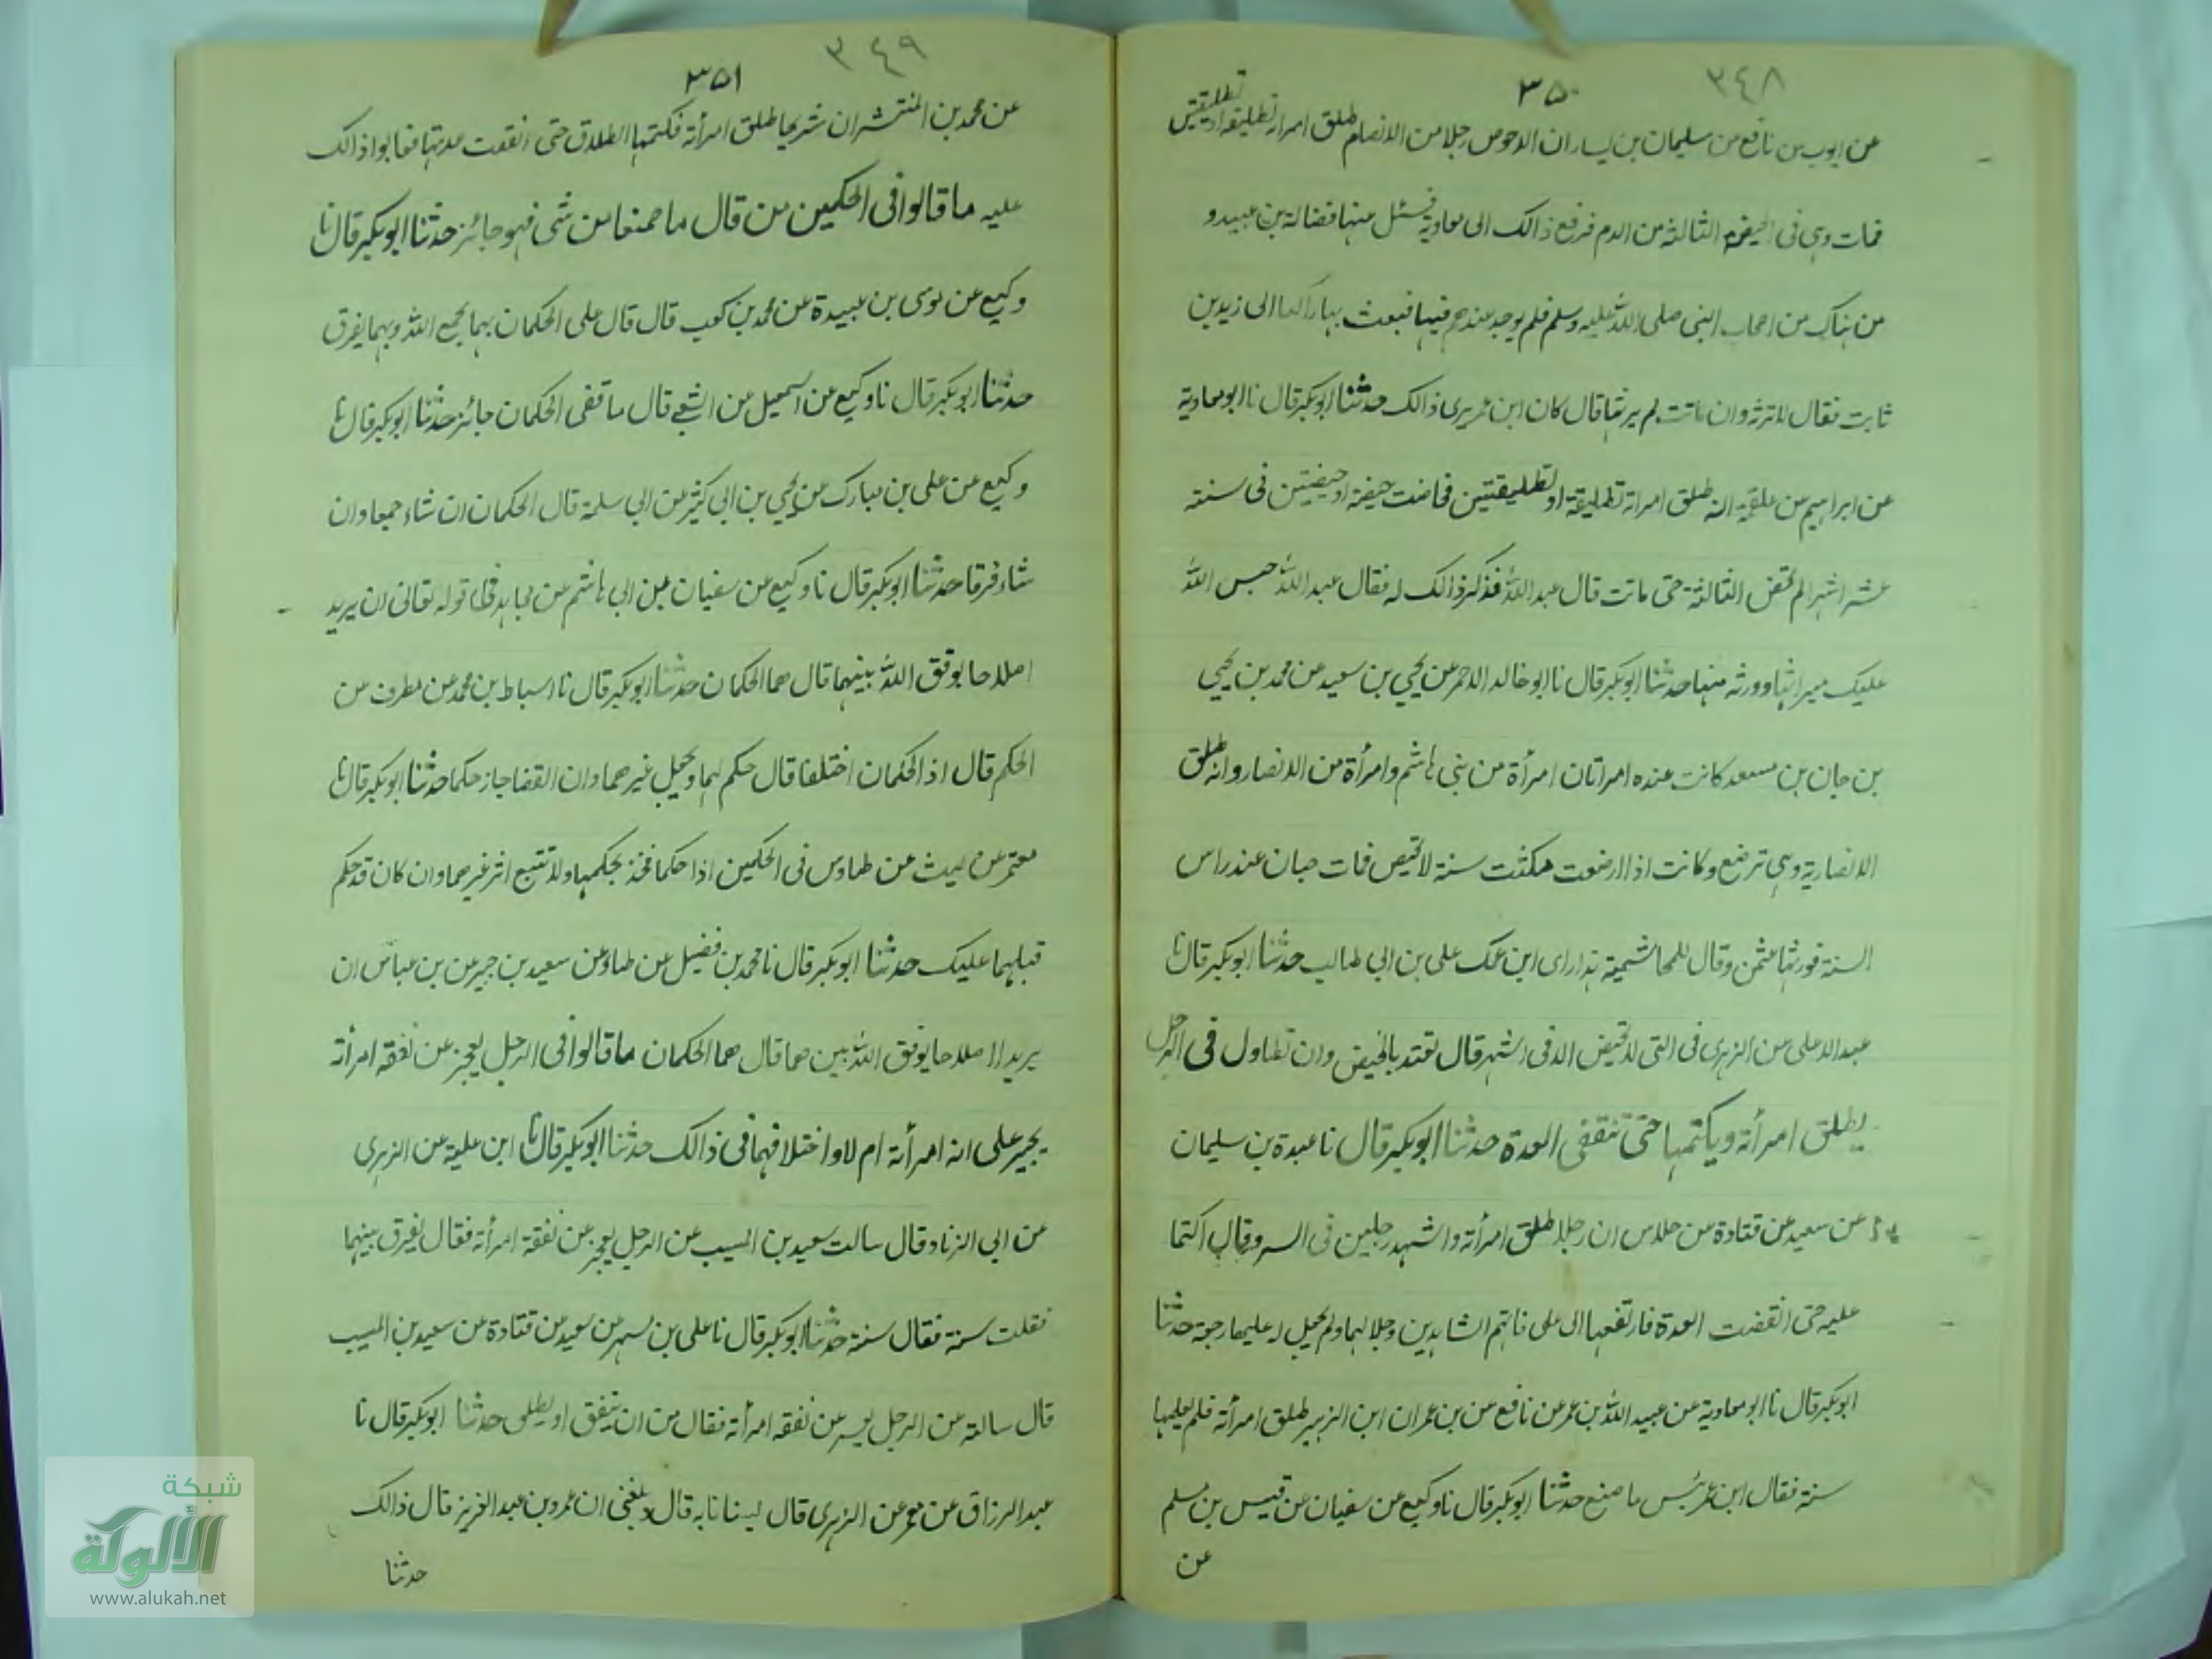 ٣٤٨
٣٥٠
عن ايوب عن نافع عن سليمان بن يسار ان الاحوص رجلا من الانصار طلق امراته تطليقة او تطليقتين
فمات وهى فى الحيضة الثالثة من الدم فرفع ذالك الى معاوية فسئل عنها فضالة بن عبيد و
من هناك من اصحاب النبى صلى الله عليه وسلم فلم يوجد عندهم فيها فبعث بها راكبا الى زيد بن
ثابت فقال لا ترثه وان ماتت لم يرثها قال كان ابن عمر يرى ذالك حدثنا ابو بكر قال نا ابو معاوية
عن ابراهيم عن علقمة انه طلق امراته تطليقة او تطليقتين فحاضت حيضة او حيضتين فى ستة
عشر اشهر الم تحض الثالثة حتى ماتت قال عبد الله فذكر ذالك له فقال عبد الله حبس الله
عليك ميراثها وورثه منها حدثنا ابو بكر قال نا ابو خالد الاحمر عن يحيي بن سعيد عن محمد بن يحيي
بن حبان بن مسعد كانت عنده امراتان امرأة من بنى هاشم وامرأة من الانصار وانه طلق
الانصارية وهى ترضع وكانت اذا ارضعت مكثت سنة لا تحيض فمات حبان عند راس
السنة فورثها عثمن وقال للهاشمية هذا راى ابن عمك على بن ابى طالب حدثنا ابو بكر قال نا
عبد الاعلى عن الزهرى فى التى لا تحيض الا فى اشهر قال تعتد بالحيض وان تطاول فى الرجل
يطلق امرأته ويكتمها حتى تنقضى العدة حدثنا ابو بكر قال نا عبدة بن سليمان
عن سعيد عن قتادة عن خلاس ان رجلا طلق امرأته واشهد رجلين فى السر وقال اكتما
عليه حتى انقضت العدة فارتفعها الى على فاتهم الشاهدين وجلدهما ولم يجعل له عليها رجعة حدثنا
ابو بكر قال نا ابو معاوية عن عبيد الله بن عمر عن نافع عن بن عمر ان ابن الزبير طلق امرأته فلم يعلمها
سنة فقال ابن عمر بئس ما صنع حدثنا ابو بكر قال نا وكيع عن سفيان عن قيس بن مسلم
عن
٣٤٩
٣٥١
عن محمد بن المنتشر ان شريحا طلق امرأته فكتمها الطلاق حتى انقضت عدتها فعابوا ذالك
عليه ما قالوا فى الحكمين من قال ما صنعا من شى فهو جائز حدثنا ابو بكر قال نا
وكيع عن موسى بن عبيدة عن محمد بن كعب قال قال على الحكمان بهما يجمع الله وبهما يفرق
حدثنا ابو بكر قال نا وكيع عن اسمعيل عن الشعبى قال ما قضى الحكمان جائز حدثنا ابو بكر قال نا
وكيع عن على بن مبارك عن يحيي بن ابى كثير عن ابى سلمة قال الحكمان ان شاء جمعا وان
شاء فرقا حدثنا ابو بكر قال نا وكيع عن سفيان عن ابى هاشم عن مجاهد فى قوله تعالى ان يريد
اصلاحا يوفق الله بينهما قال هما الحكمان حدثنا ابو بكر قال نا اسباط بن محمد عن مطرف عن
الحكم قال اذ الحكمان اختلفا قال حكم لهما ويجعل غيرهما وان اتفقا جاز حكما حدثنا ابو بكر قال نا
معتمر عن ليث عن طاوس فى الحكمين اذا حكما فخذ بحكمهما ولا تتبع اثر غيرهما وان كان قد حكم
قبلهما عليك حدثنا ابو بكر قال نا محمد بن فضيل عن عطاء عن سعيد بن جبير عن بن عباس ان
يريدا اصلاحا يوفق الله بينهما قال هما الحكمان ما قالوا فى الرجل يعجز عن نفقه امرأته
يجبر على انه امرأته ام لا واختلافهما فى ذالك حدثنا ابو بكر قال نا ابن علية عن الزهرى
عن ابى الزناد قال سالت سعيد بن المسيب عن الرجل يعجز عن نفقة امرأته فقال يفرق بينهما
فقلت سنة فقال سنة حدثنا ابو بكر قال نا على بن مسهر عن سعيد عن قتادة عن سعيد بن المسيب
قال سالته عن الرجل يعسر عن نفقه امرأته فقال من ان ينفق او يطلق حدثنا ابو بكر قال نا
عبد الرزاق عن معمر عن الزهرى قال يستانا به قال وبلغنى ان عمرو بن عبد العزيز قال ذالك
حدثنا
شبكة
الألوكة
www.alukah.net